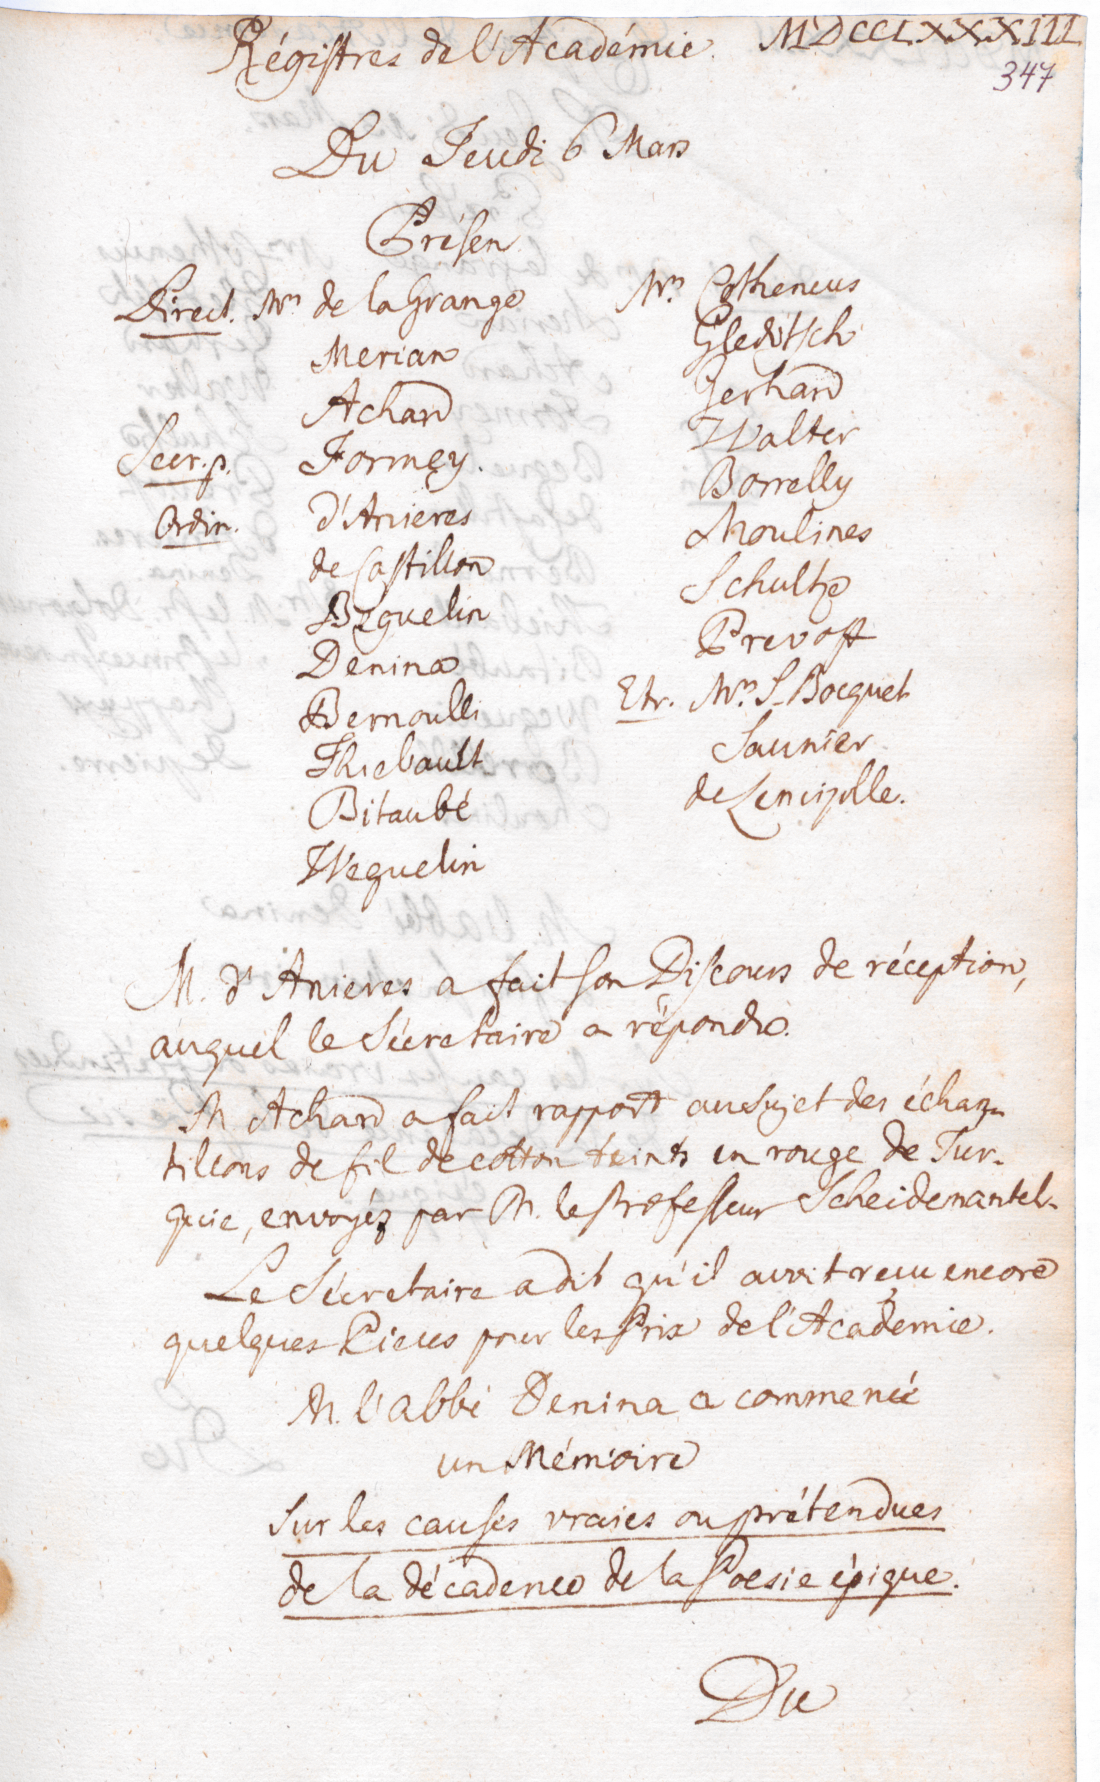 Régistres de l'Académie. MDCCLXXXIII
347
Du Jeudi 6 Mars
Présen
Direct. Mrs de la Grange
Merian
Achard
Secr. p. Formey.
Ordin. d'Anieres
de Castillon
Beguelin
Denina
Bernoulli
Thiebault
Bitaubé
Weguelin
Mrs Cothenius
Gleditsch
Gerhard
Walter
Borrelly
Moulines
Schultz
Prevost
Etr. Mrs S. Bocquet
Saunier
de Lancizolle.
M. d'Anieres a fait son Discours de réception,
auquel le Sécretaire a répondu.
M Achard a fait rapport au sujet des échan-
tillons de fil de cotton teints en rouge de Tur-
quie, envoyés par M. le Professeur Scheidemantel.
Le Sécretaire a dit qu'il avoit reçu encore
quelques Pieces pour les Prix de l'Académie.
M. l'abbé Denina a commencé
un Mémoire
sur les causes vraies ou prétendues
de la décadence de la Poesie épique.
Du